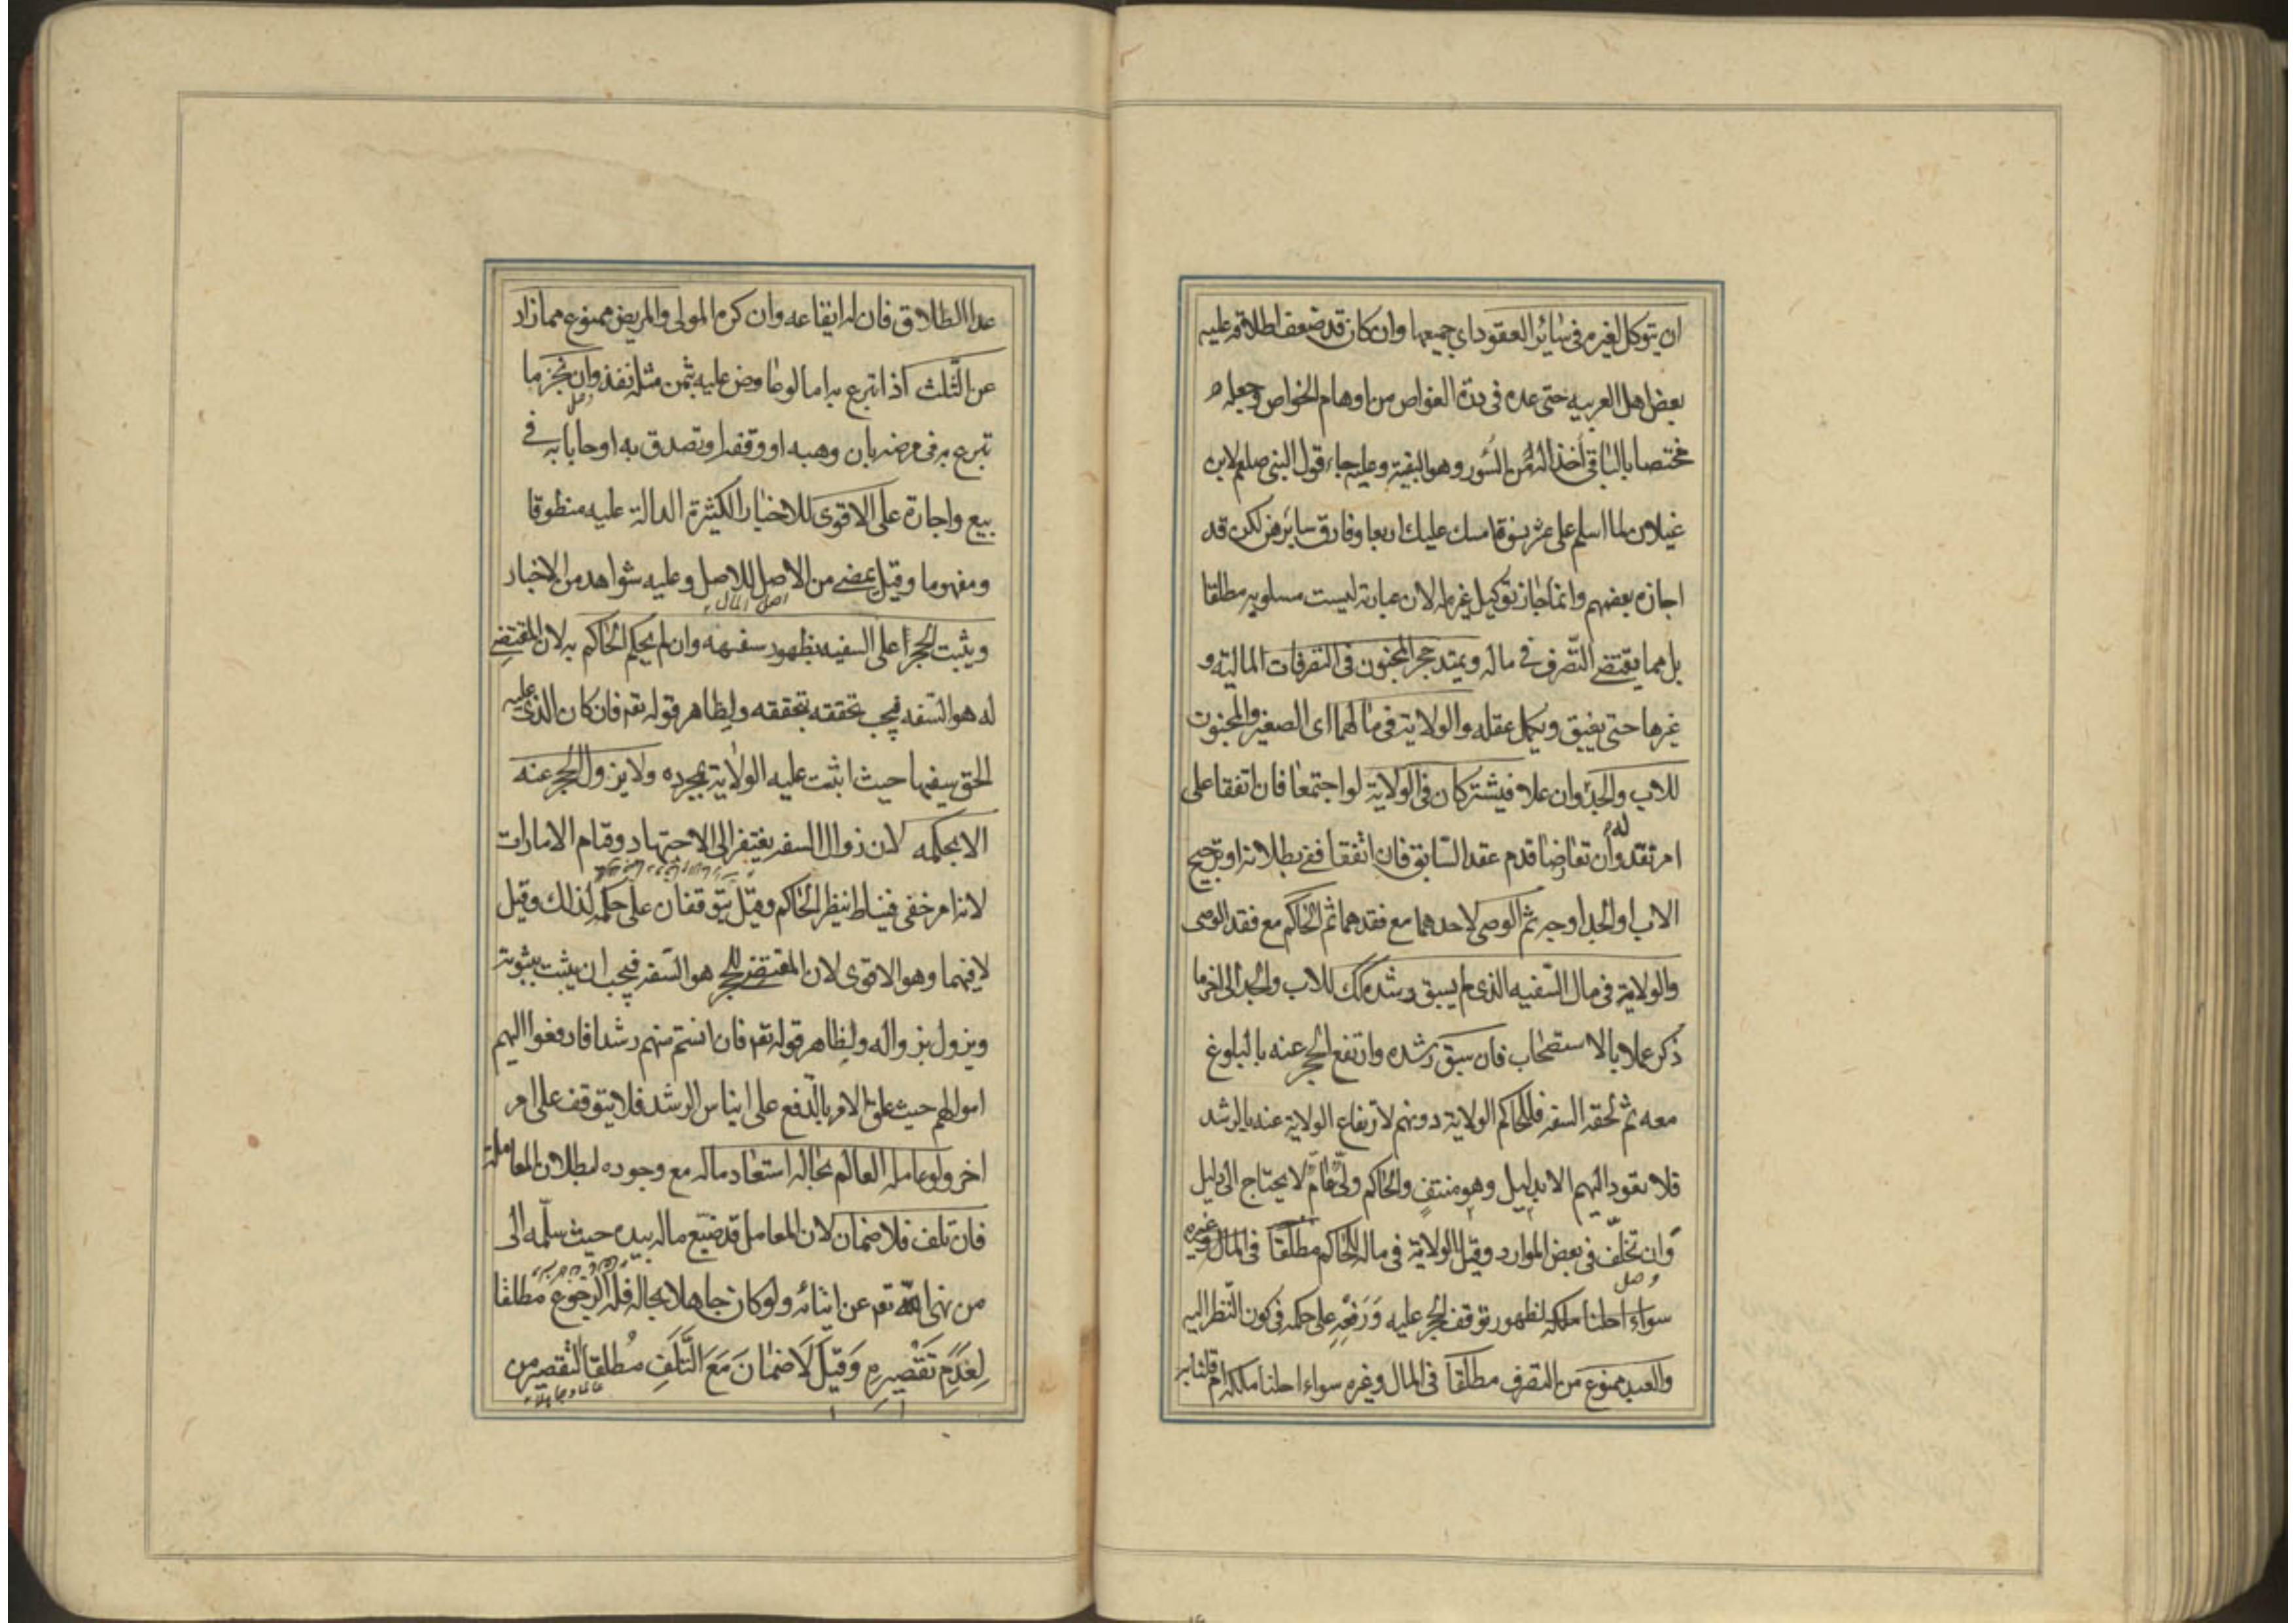 ان يتوكل لغيره في سائر العقود اي جميعها وان كان قد ضعف اطلاقه عليه
بعض اهل العربيه حتى عده في درة الغواص من اوهام الخواص وجعله
مختصا بالباقي أخذا له من السؤر وهو البقية وعليه جاء قول النبي صلعم لابن
غيلان لما اسلم على عشر نسوة امسك عليك اربعا وفارق سائرهن لكن قد
اجازه بعضهم وانما جاز توكيل غيره له لان عبارته ليست مسلوبه مطلقا
بل مما يقتضي التصرف في ماله ويمتد حجر المجنون في التصرفات المالية و
غيرها حتى يفيق ويكمل عقله والولاية في مالهما اى الصغير والمجنون
للاب والجد وان علا فيشتركان في الولاية لو اجتمعا فان اتفقا على
امر نفذ وان تعارضا قدم عقد السابق فان اتفقا ففي بطلانه او ترجيح
له
الاب او الجد اوجه ثم الوصي لاحدهما مع فقدهما ثم الحاكم مع فقد الوصى
والولاية في مال السفيه الذى لم يسبق رشده كك للاب والجد الى اخر ما
ذكر عملا بالاستصحاب فان سبق رشده وارتفع الحجر عنه بالبلوغ
معه ثم لحقه السفه فللحاكم الولاية دونهم لارتفاع الولاية عنه بالرشد
فلا تعود اليهم الا بدليل وهو منتف والحاكم ولي عام لا يحتاج الى دليل
وان تخلف في بعض الموارد وقيل الولاية في ماله للحاكم مطلقا في المال وغيره
وصل
سواء احلنا ملكه لظهور توقف الحجر عليه ورفعه على حكمه في كون النظر اليه
والعبد ممنوع من التصرف مطلقا في المال وغيره سواء احلنا ملكه ام قلنا به
عدا الطلاق فان له ايقاعه وان كره المولى والمريض ممنوع مما زاد
عن الثلث اذا تبرع به اما لو عاوض عليه بثمن مثله نفذ وان نجز ما
وصل
تبرع به في مرضه بان وهبه او وقفه او تصدق به او حابا به في
بيع واجارة على الاقوى للاخبار الكثيرة الدالة عليه منطوقا
ومفهوما وقيل يمضي من الاصل للاصل وعليه شواهد من الاخبار
اصل المال
ويثبت الحجر على السفيه بظهور سفهه وان لم يحكم الحاكم به لان المقتضي
له هو السفه فيجب تحققه بتحققه ولظاهر قوله تعه فان كان الذى عليه
الحق سفيها حيث اثبت عليه الولاية بمجرده ولا يزول الحجر عنه
الا بحكمه لان زوال السفه يفتقر الى الاجتهاد وقيام الامارات
لانه امر خفى فيناط بنظر الحاكم وقيل يتوقفان على حكمه لذلك وقيل
لا فيهما وهو الاقوى لان المقتضي للحجر هو السفه فيجب ان يثبت بثبوته
ويزول بزواله ولظاهر قوله تعه فان انستم منهم رشدا فادفعوا اليهم
اموالهم حيث علق الامر بالدفع على ايناس الرشد فلا يتوقف على امر
اخر ولو عامله العالم بحاله استعاد ماله مع وجوده لبطلان المعاملة
فان تلف فلا ضمان لان المعامل قد ضيع ماله بيده حيث سلمه الى
من نهى الله تعه عن ايتائه ولو كان جاهلا بحاله فله الرجوع مطلقا
لعدم تقصيره وقيل لا ضمان مع التلف مطلقا لتقصير من
عالما وجاهلا